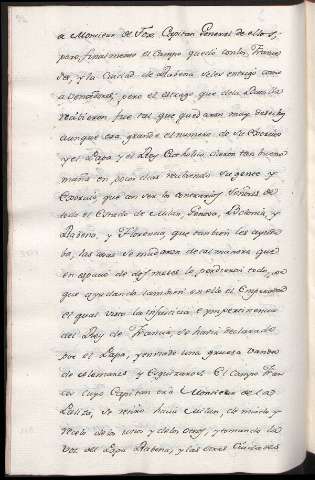 a Monsieur de Fox Capitan General de ellos,
pero finalmente el Campo quedó con los France
ses, y la Ciudad de Rabena se les entregó como
a Vencedores, pero el estrago que de la Batalla
recibieron fue tal que quedaron muy deshechos
aunque era grande el numero de su Exercito
y el Papa y el Rey Catholico dieron tan buena
maña en pocos dias rehaciendo su gente y
Exercito, que con ver los contrarios Señores de
todo el Estado de Milan, Genova, Bolonia, y
Rabena, y Florencia, que tambien les ayuda
ba, las cosas se mudaron de tal manera que
en espacio de dos meses lo perdieron todo,
que ayudando tambien en ello el Emperador
el qual vista la injusticia e impertinencia
del Rey de Francia, se havia declarado
por el Papa, y embiado una gruesa vanda
de Alemanes y Esguizaros. El Campo Fran
ces cuyo Capitan era Monsieur de la
Paliza, se retiró hacia Milan, de miedo y
recelo de los unos y de los otros, y tomando la
voz del Papa Rabena, y las otras Ciudades